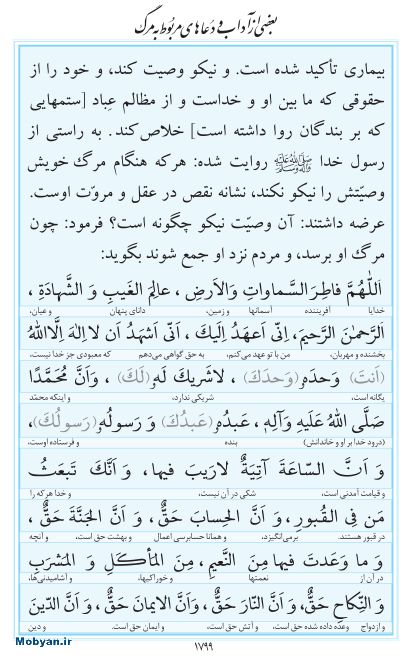 بعضی از آداب و دعاهای مربوط به مرگ
بیماری تأکید شده است. و نیکو وصیت کند، و خود را از
حقوقی که ما بین او و خداست و از مظالم عِباد [ستمهایی
که بر بندگان روا داشته است] خلاص کند. به راستی از
رسول خدا ﷺ روایت شده: هرکه هنگام مرگ خویش
وصیّتش را نیکو نکند، نشانه نقص در عقل و مروّت اوست.
عرضه داشتند: آن وصیّت نیکو چگونه است؟ فرمود: چون
مرگ او برسد، و مردم نزد او جمع شوند بگوید:
اَللّٰهُمَّ فاطِرَ السَّماواتِ وَالاَرضِ ، عالِمَ الغَیبِ وَ الشَّهادَةِ ،
خدایا آفریننده آسمانها و زمین، دانای پنهان و عیان،
اَلرَّحمٰنَ الرَّحیمَ، اِنّی اَعهَدُ اِلَیكَ ، اَنّی اَشهَدُ اَن لا اِلٰهَ اِلَّا اللّٰهُ
بخشنده و مهربان، من با تو عهد می‌کنم، به حق گواهی می‌دهم که معبودی جز خدا نیست،
(اَنتَ) وَحدَهٗ (وَحدَكَ) ، لا شَریكَ لَهٗ (لَكَ) ، وَ اَنَّ مُحَمَّدًا
یگانه است، شریکی ندارد، و اینکه محمّد
صَلَّی اللّٰهُ عَلَیهِ وَ آلِهٖ، عَبدُهٗ (عَبدُكَ) وَ رَسولُهٗ (رَسولُكَ)،
(درود خدا بر او و خاندانش) بنده و فرستاده اوست،
وَ اَنَّ السّاعَةَ آتِیَةٌ لا رَیبَ فیها، وَ اَنَّكَ تَبعَثُ
و قیامت آمدنی است، شکی در آن نیست، و خدا هرکه را
مَن فِی القُبورِ، وَ اَنَّ الحِسابَ حَقٌّ ، وَ اَنَّ الجَنَّةَ حَقٌّ ،
در قبور هستند. برمی‌انگیزد، و همانا حسابرسی اعمال و بهشت حق است، و آنچه
وَ ما وَعَدتَ فیها مِنَ النَّعیمِ، مِنَ المَأکَلِ وَ المَشرَبِ
در آن از نعمتها و خوراکیها، و آشامیدنی‌ها،
وَ النِّکاحِ حَقٌّ، وَ اَنَّ النّارَ حَقٌّ ، وَ اَنَّ الایمانَ حَقٌّ ، وَ اَنَّ الدّینَ
و ازدواج وعده داده شده حق است، و آتش حق است، و ایمان حق است. و دین
۱۷۹۹
Mobyan.ir